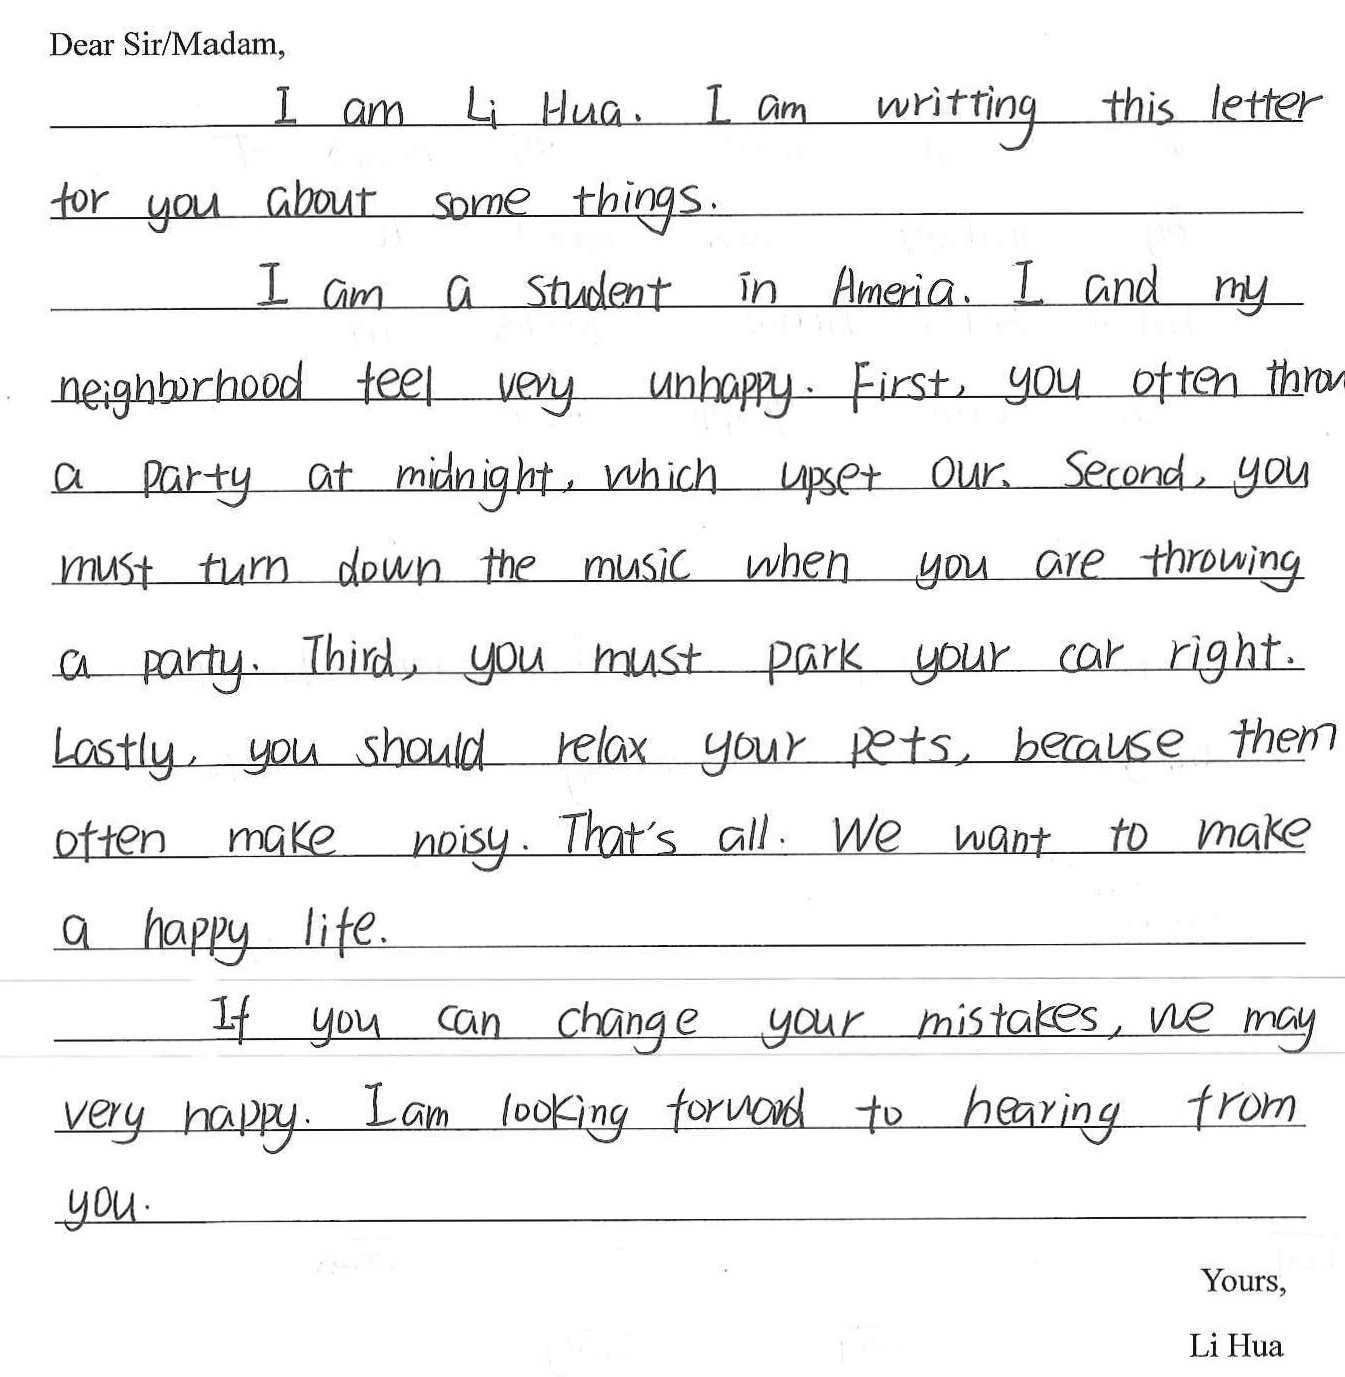 Dear Sir/Madam,
I am Li Hua. I am writting this letter
for you about some things.
I am a student in Ameria. I and my
neighborhood feel very unhappy. First, you often throw
a party at midnight, which upset our. Second, you
must turn down the music when you are throwing
a party. Third, you must park your car right.
Lastly, you should relax your pets, because them
often make noisy. That's all. We want to make
a happy life.
If you can change your mistakes, we may
very happy. I am looking forward to hearing from
you.
Yours,
Li Hua